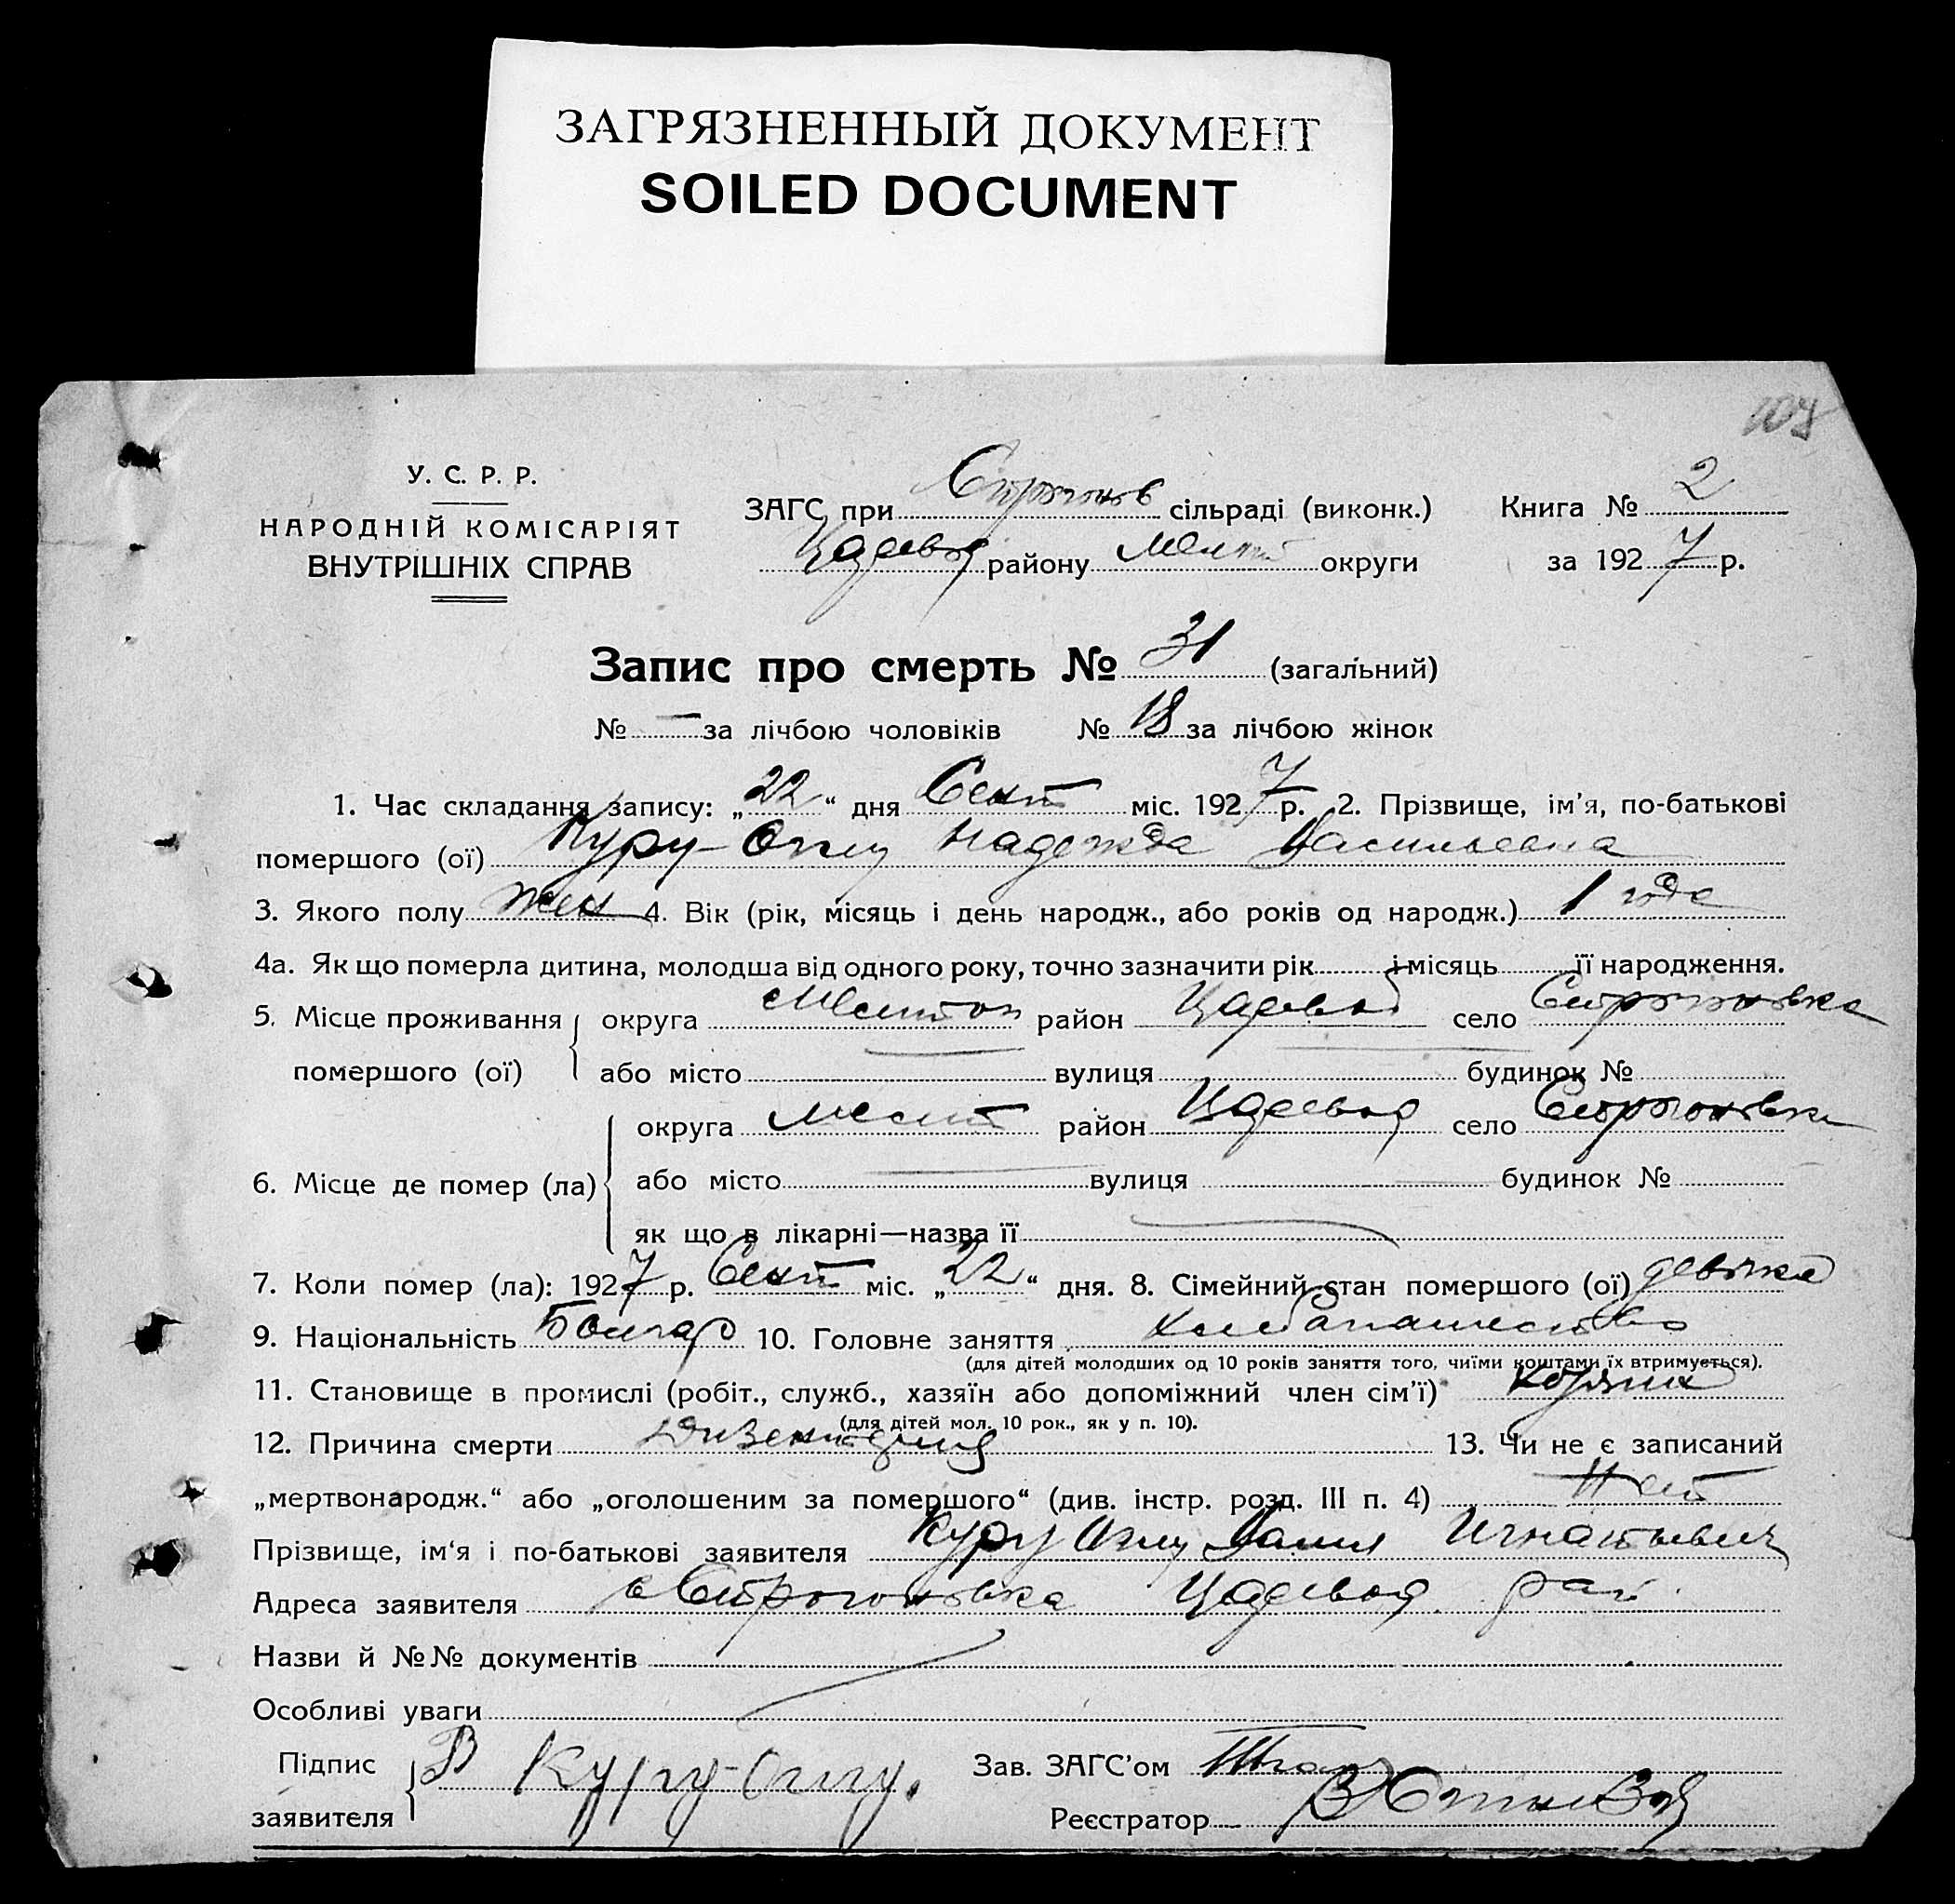 ЗАГРЯЗНЕННЫЙ ДОКУМЕНТ
SOILED DOCUMENT
У. С. Р. Р.
НАРОДНІЙ КОМІСАРІЯТ
ВНУТРІШНІХ СПРАВ
ЗАГС при Строганов сільраді (виконк.)
району округи
Книга № 2
за 1927 р.
Запис про смерть № 31 (загальний)
№ — за лічбою чоловіків № 18 за лічбою жінок
1. Час складання запису: „22“ дня Сент міс. 1927 р. 2. Прізвище, ім'я, по-батькові
помершого (ої) Куру-Оглу Надежда Васильевна
3. Якого полу жен 4. Вік (рік, місяць і день народж., або років од народж.) 1 года
4а. Як що померла дитина, молодша від одного року, точно зазначити рік і місяць її народження.
5. Місце проживання округа Мелитоп район село Строгановка
помершого (ої) або місто вулиця будинок №
округа Мелит район село Строгановка
6. Місце де помер (ла) або місто вулиця будинок №
як що в лікарні—назва її
7. Коли помер (ла): 1927 р. Сент міс. „22“ дня. 8. Сімейний стан помершого (ої) девочка
9. Національність Болгар 10. Головне заняття хлебопашество
(для дітей молодших од 10 років заняття того, чиїми коштами їх втримується).
11. Становище в промислі (робіт., служб., хазяїн або допоміжний член сім'ї) хозяин
(для дітей мол. 10 рок., як у п. 10).
12. Причина смерти Дизентерия 13. Чи не є записаний
„мертвонародж.“ або „оголошеним за помершого“ (див. інстр. розд. III п. 4) Нет
Прізвище, ім'я і по-батькові заявителя Куру Оглу Игнатьевич
Адреса заявителя с Строгановка рай.
Назви й №№ документів
Особливі уваги
Підпис
заявителя В Куру-Оглу.
Зав. ЗАГС'ом
Реєстратор